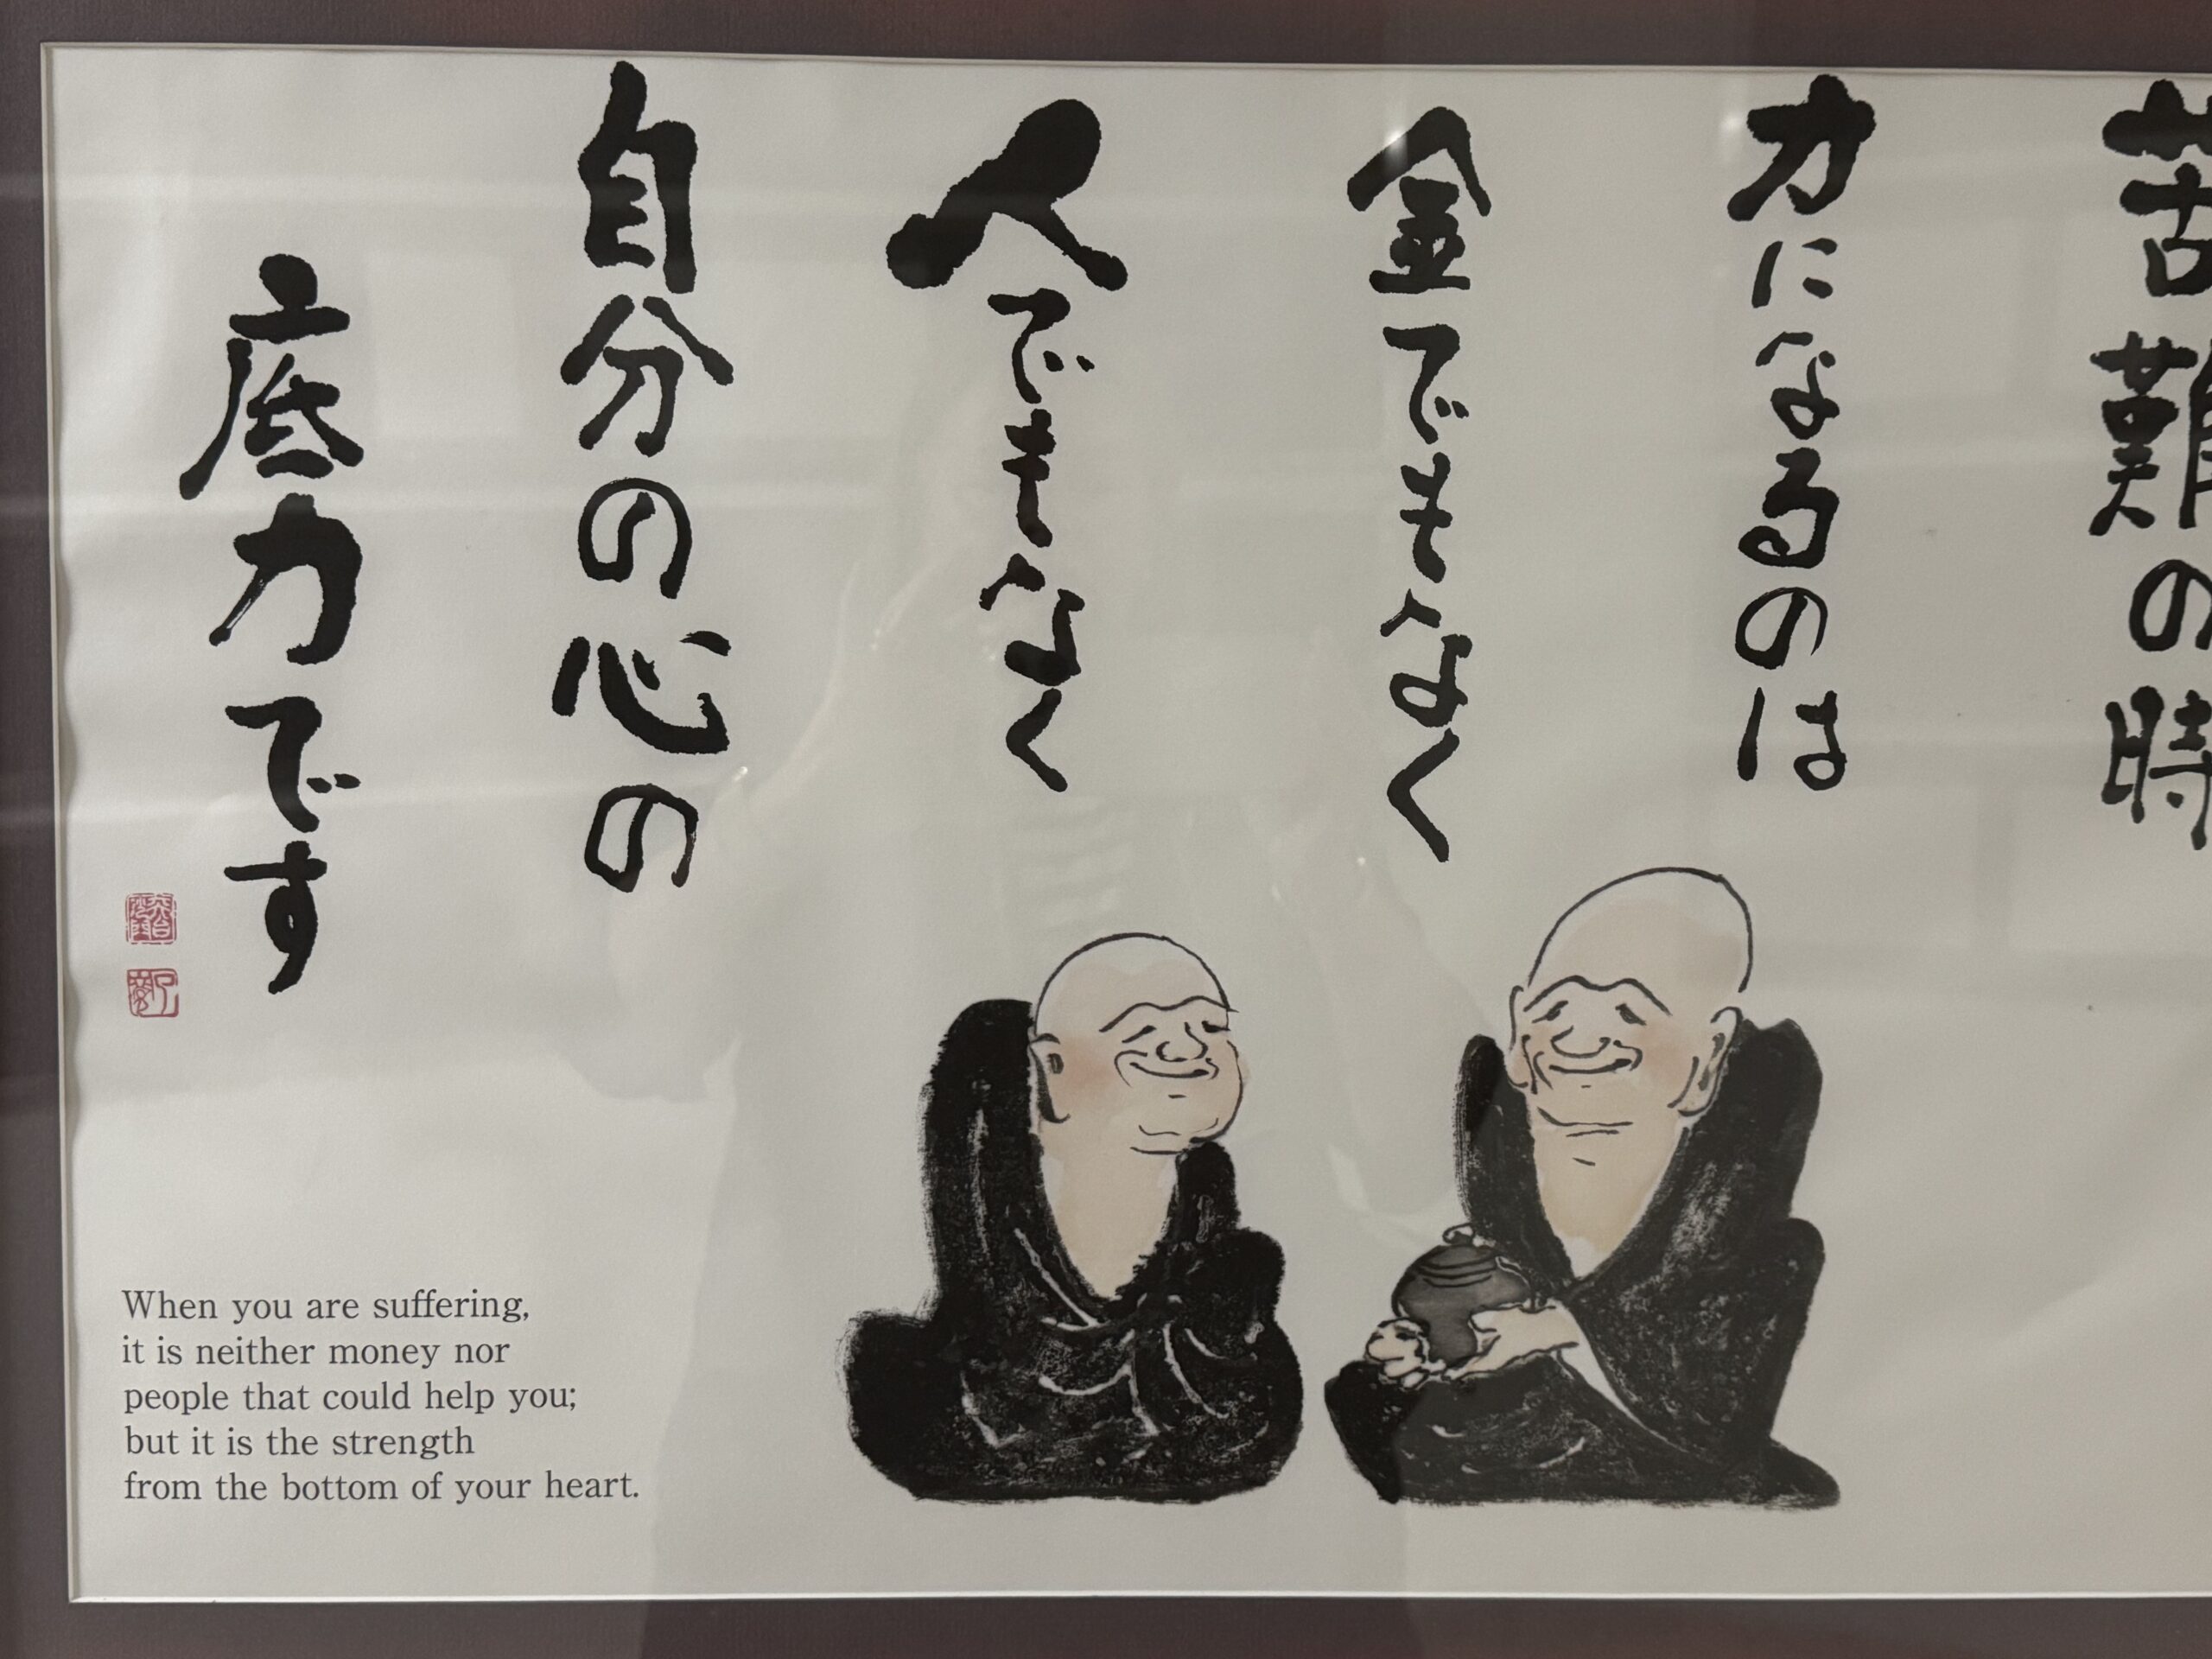 苦難の時
力になるのは
金でもなく
人でもなく
自分の心の
底力です
When you are suffering,
it is neither money nor
people that could help you;
but it is the strength
from the bottom of your heart.